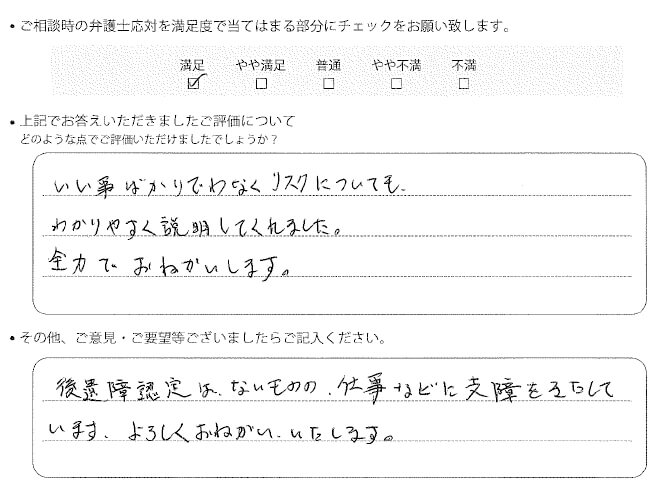 • ご相談時の弁護士応対を満足度で当てはまる部分にチェックをお願い致します。
満足 やや満足 普通 やや不満 不満
• 上記でお答えいただきましたご評価について
どのような点でご評価いただけましたでしょうか？
いい事ばかりでわなくリスクについても、
わかりやすく説明してくれました。
全力でおねがいします。
• その他、ご意見・ご要望等ございましたらご記入ください。
後遺障認定は、ないものの、仕事などに支障をきたして
います、よろしくおねがい、いたします。